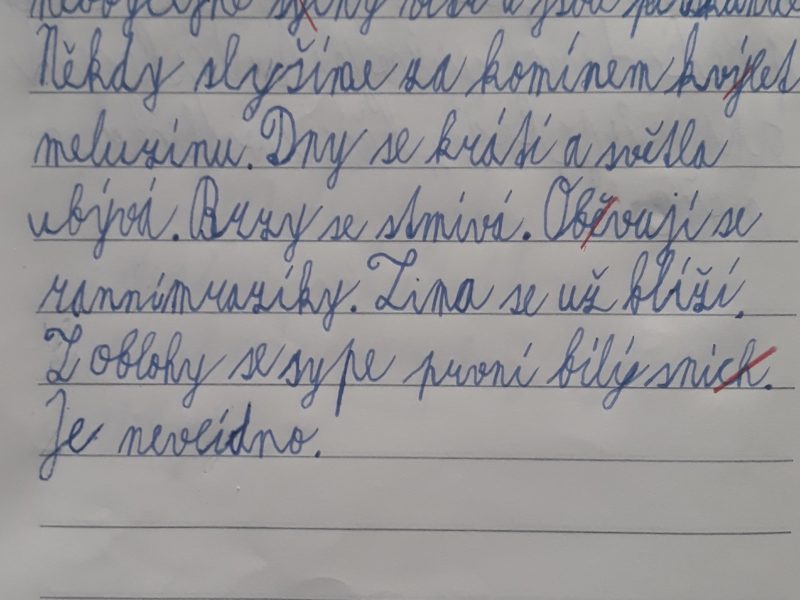 Někdy slyšíme za komínem kvýlet
meluzínu. Dny se krátí a světla
ubývá. Brzy se stmívá. Oběvují se
ranní mrazíky. Zima se už blíží.
Z oblohy se sype první bílý sních.
Je nevlídno.